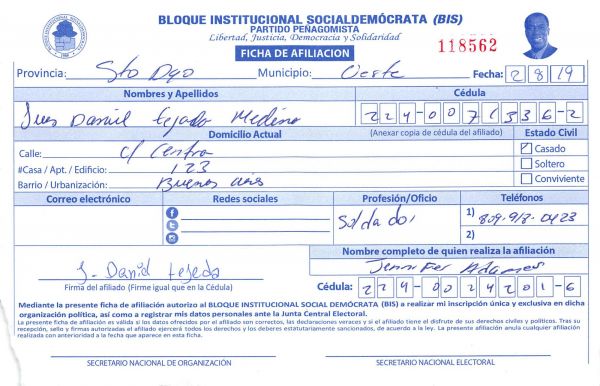 BLOQUE INSTITUCIONAL SOCIALDEMÓCRATA (BIS)
PARTIDO PEÑAGOMISTA
Libertad, Justicia, Democracia y Solidaridad
FICHA DE AFILIACION
118562
Provincia: Sto Dgo Municipio: Oeste Fecha: 2 8 19
Nombres y Apellidos Cédula
Daniel Tejada Medina 224-0071336-2
Domicilio Actual (Anexar copia de cédula del afiliado) Estado Civil
Calle: c/ Central Casado
#Casa / Apt. / Edificio: 123 Soltero
Barrio / Urbanización: Buenos Aires Conviviente
Correo electrónico Redes sociales Profesión/Oficio Teléfonos
Soldador 1) 809-918-0423
2)
Nombre completo de quien realiza la afiliación
J. Daniel Tejeda Jennifer Adames
Firma del afiliado (Firme igual que en la Cédula) Cédula: 224-0024201-6
Mediante la presente ficha de afiliación autorizo al BLOQUE INSTITUCIONAL SOCIAL DEMÓCRATA (BIS) a realizar mi inscripción única y exclusiva en dicha
organización política, así como a registrar mis datos personales ante la Junta Central Electoral.
La presente ficha de afiliación es válida si los datos ofrecidos por el afiliado son correctos, las declaraciones veraces y si el afiliado tiene el disfrute de sus derechos civiles y políticos. Tras su
recepción, sello y firmas autorizadas el afiliado ejercerá todos los derechos y los deberes estatutariamente sancionados, de acuerdo a la ley. La presente afiliación anula cualquier afiliación
realizada con anterioridad a la fecha que aparece en esta ficha.
SECRETARIO NACIONAL DE ORGANIZACIÓN SECRETARIO NACIONAL ELECTORAL